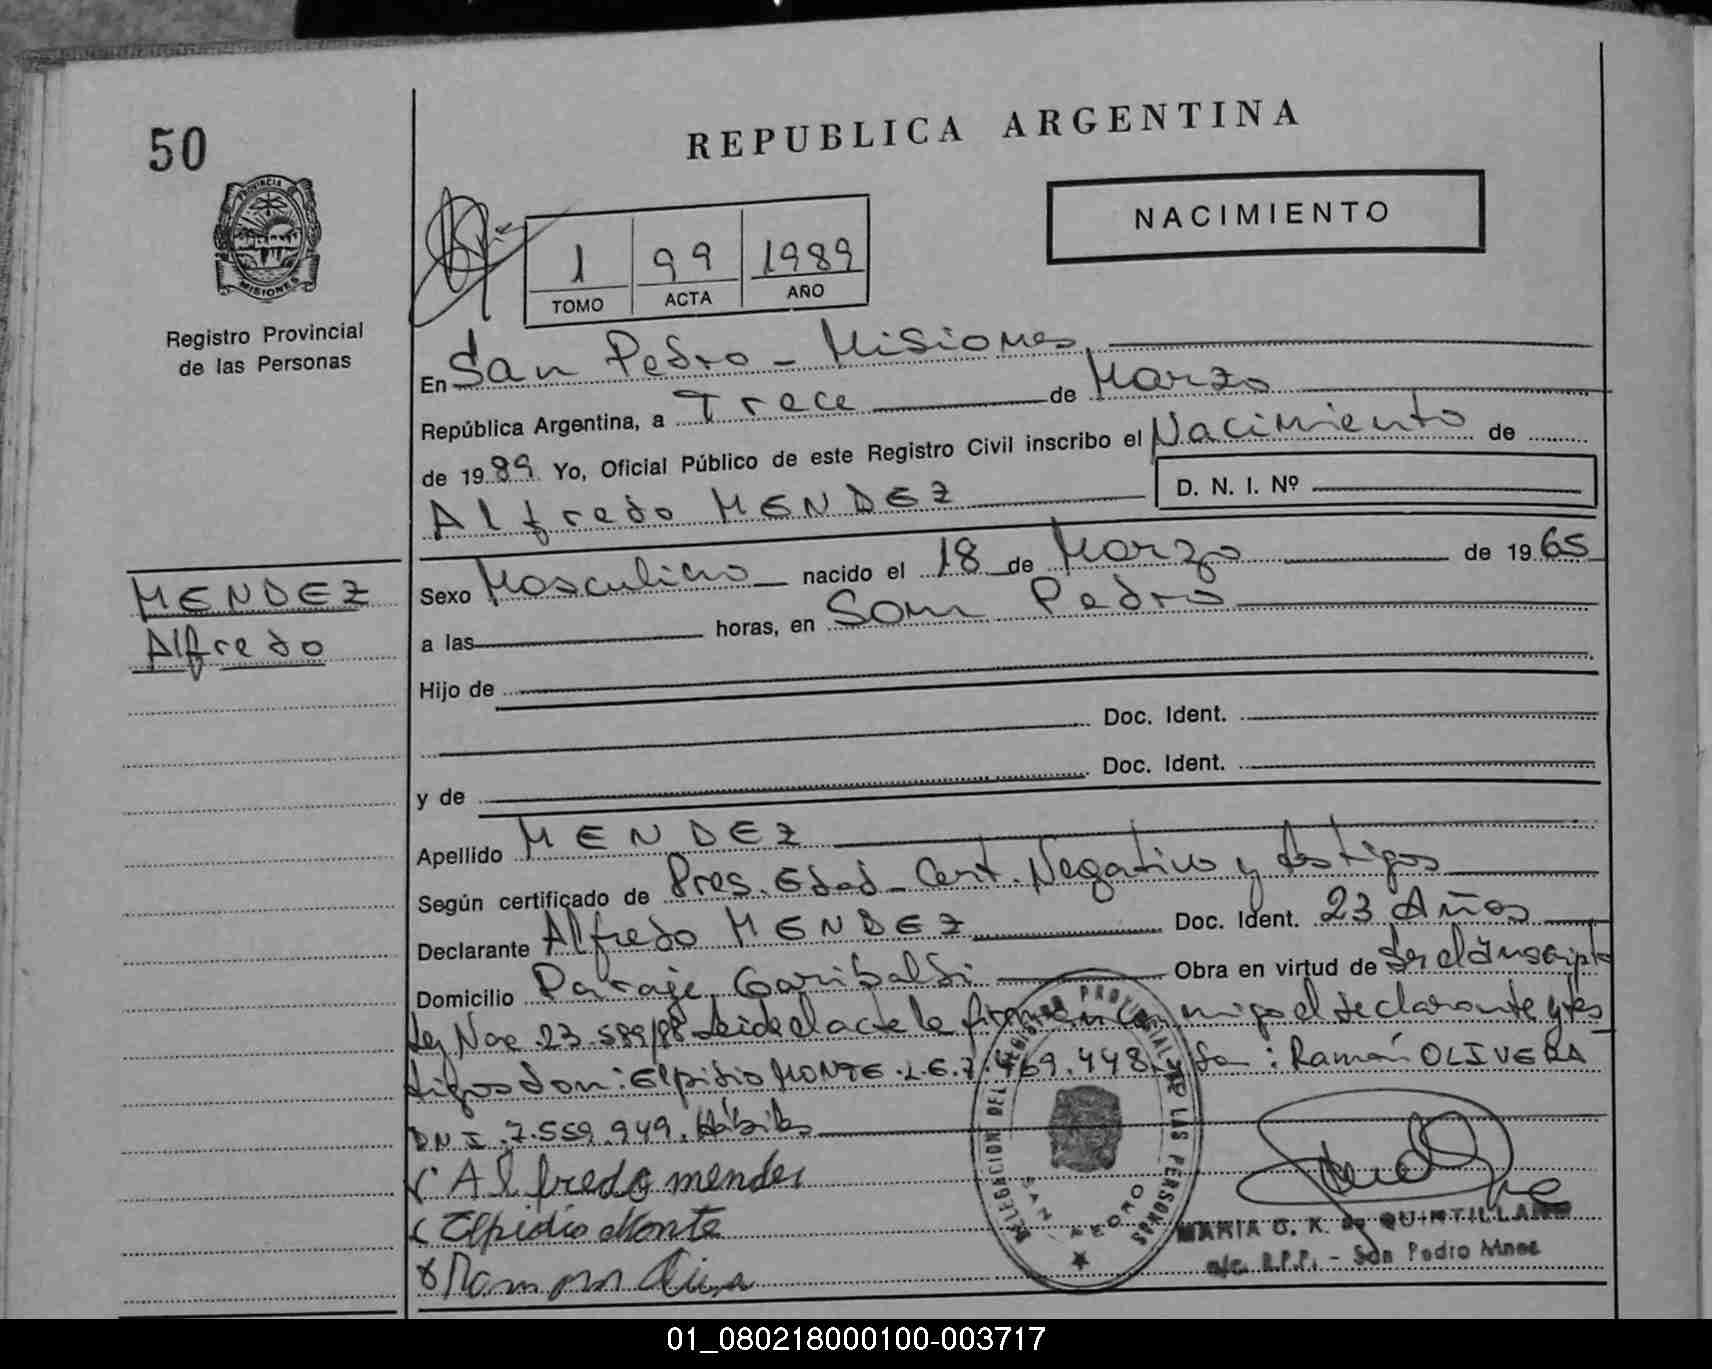 50
REPUBLICA ARGENTINA
PROVINCIA DE
MISIONES
NACIMIENTO
1 99 1989
TOMO ACTA AÑO
Registro Provincial
de las Personas
En San Pedro - Misiones
República Argentina, a Trece de Marzo
de 1989 Yo, Oficial Público de este Registro Civil inscribo el Nacimiento de
Alfredo MENDEZ D. N. I. Nº
MENDEZ
Alfredo
Sexo Masculino nacido el 18 de Marzo de 1965
a las horas, en San Pedro
Hijo de
Doc. Ident.
y de Doc. Ident.
Apellido MENDEZ
Según certificado de Pres. Edad - Cert. Negativo y testigos
Declarante Alfredo MENDEZ Doc. Ident. 23 Años
Domicilio Paraje Garibaldi Obra en virtud de ser el inscripto
Ley Nac. 23.589/88 Leida el acta la firman con migo el declarante y tes
tigos don: Elpidio MONTE L.E. 7.469.448 y don: Ramón OLIVERA
DNI. 7.559.949. Hábiles
Alfredo mendes
Elpidio Monte
Ramon
DELEGACION DEL REGISTRO PROVINCIAL DE LAS PERSONAS
SAN PEDRO
MARIA G. K. de QUINTILLANO
a/c. R.P.P. - San Pedro Mnes
01_080218000100-003717